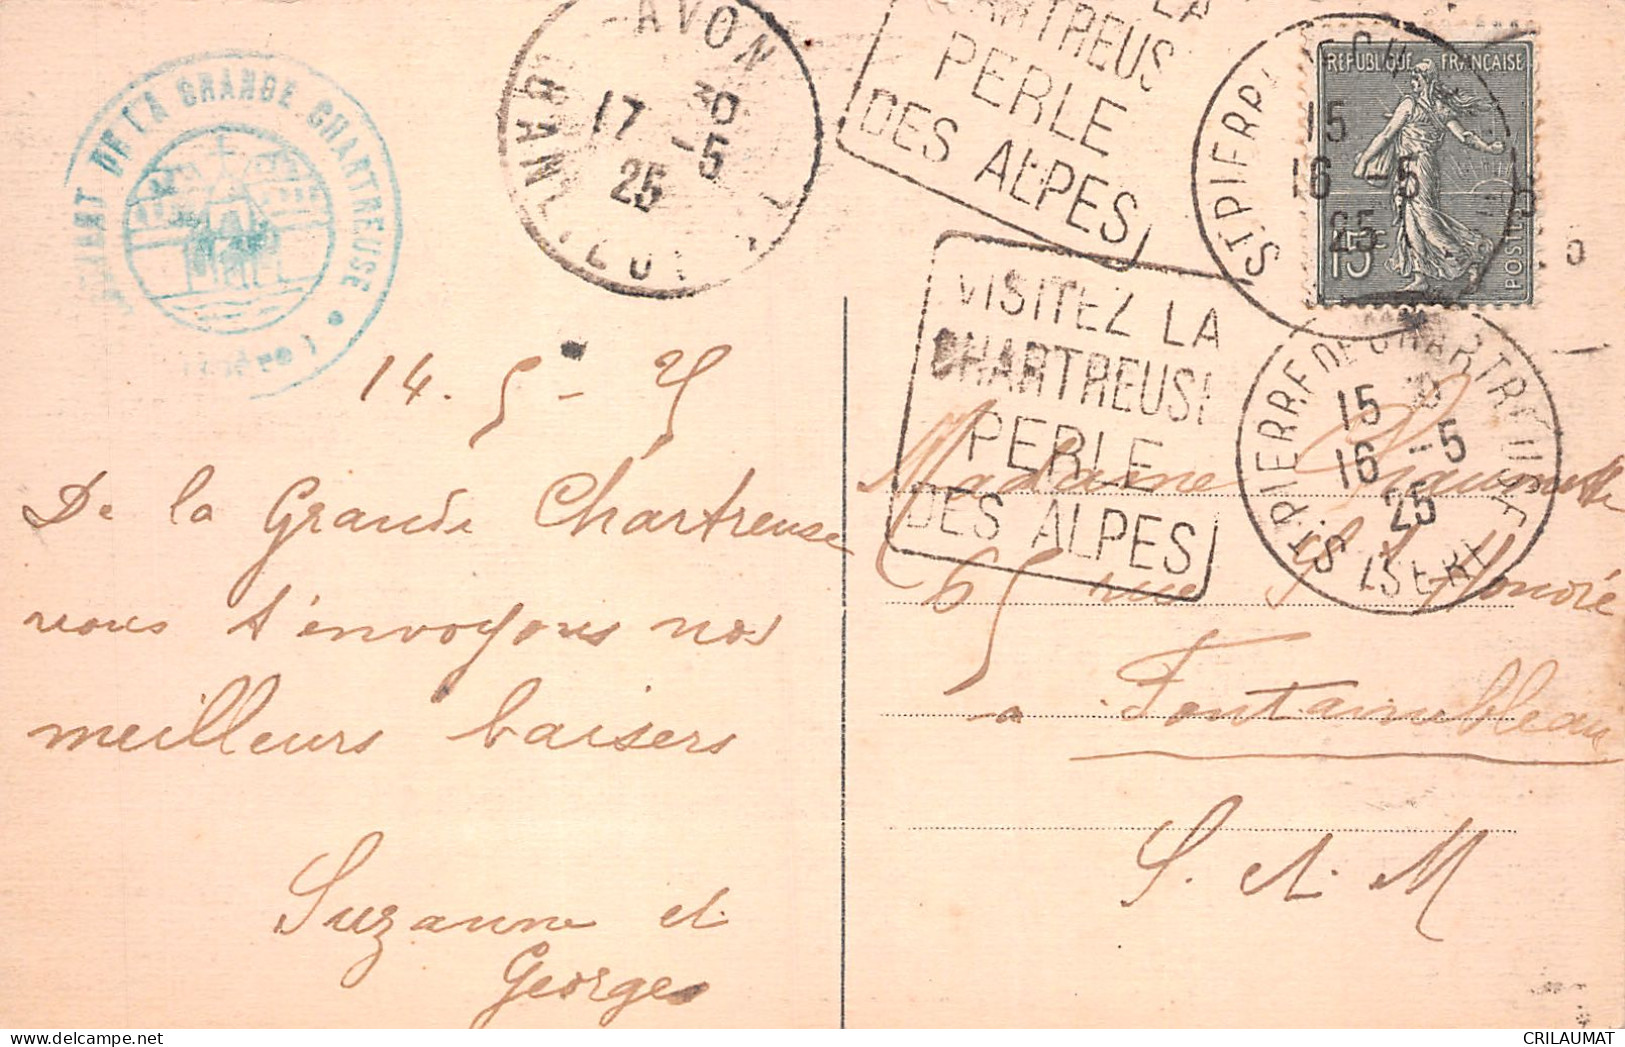 DE LA GRANDE CHARTREUSE
AVON
17 30 -5
25
CHARTREUS
PERLE
DES ALPES
REPUBLIQUE FRANÇAISE
15c
POSTES
ST PIERRE
15
16 -5
25
VISITEZ LA
CHARTREUSE
PERLE
DES ALPES
ST PIERRE DE CHARTREUSE
15
16 -5
25
ISERE
14. 5 - 25
De la Grande Chartreuse
nous t'envoyons nos
meilleurs baisers
Suzanne et
Georges
Madame
65 rue St Honoré
a Fontainebleau
S. et. M
CRILAUMAT